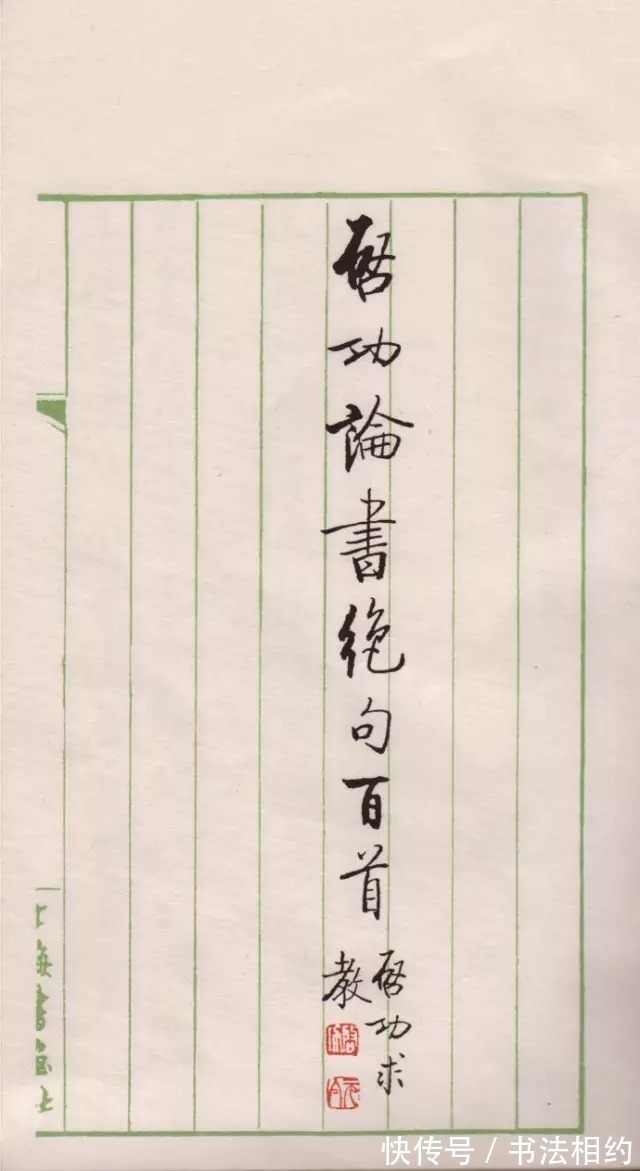 启功論書絶句百首
启功求
教
上海書画社
快传号 / 书法相约